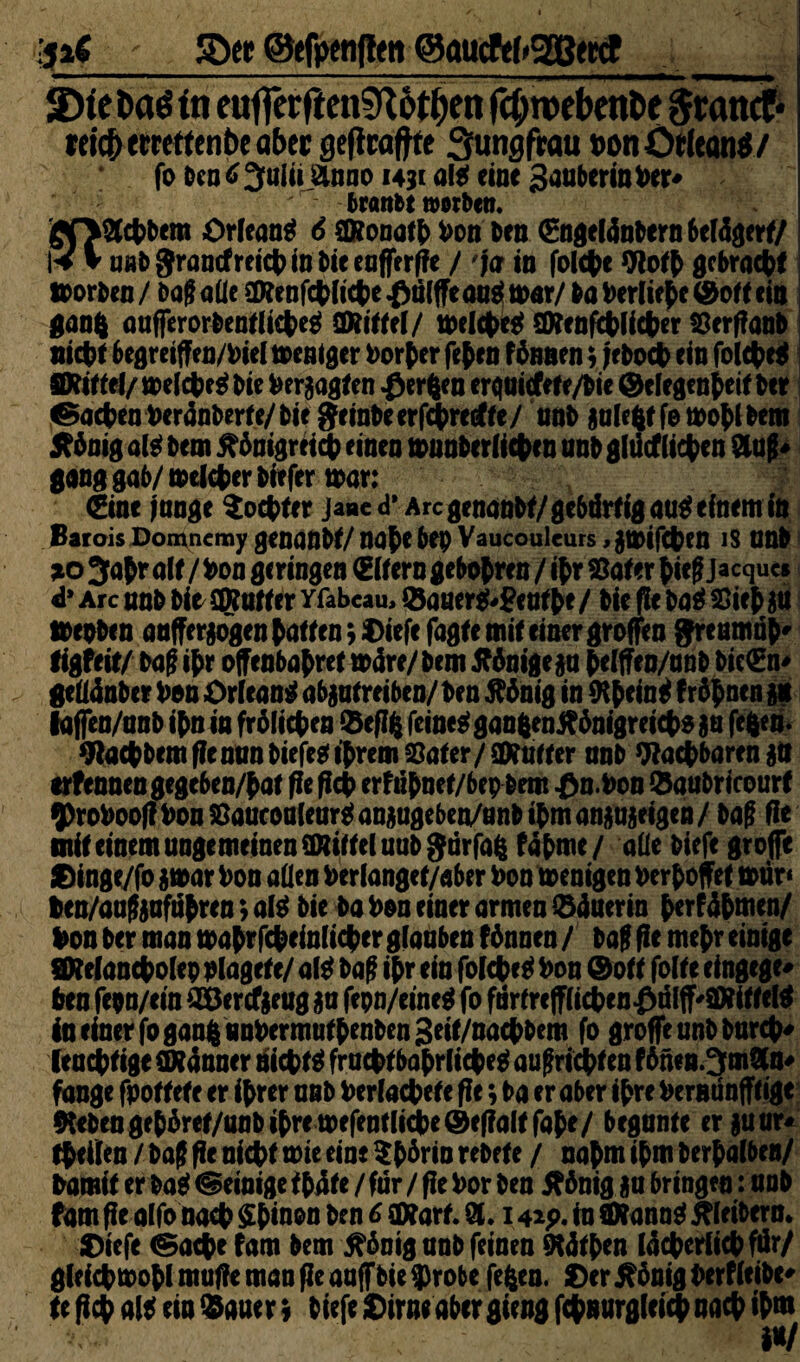 526 Der Gespensten Gauckel-Werck
Die das in eusserstenNöthen schwebende Franck-
reich errettende aber gestraffte Jungfrau von Orleans/
so den 6 Julii Anno 1431 als eine Zauberin ver-
brandt worden.
NAchdem Orleans 6 Monath von den Engeländern belägert/
und Franckreich in die eusserste / ja in solche Noth gebracht
worden / daß alle Menschliche Hülffe aus war/ da verliehe Gott ein
gantz ausserordentliches Mittel/ welches Menschlicher Verstand
nicht begreiffen/viel weniger vorher sehen können; jedoch ein solches
Mittel/ welches die verzagten Hertzen erquickete/die Gelegenheit der
Sachen veränderte/ die Feinde erschreckte/ und zuletzt so wohl dem
König als dem Königreich einen wunderlichen und glücklichen Auß-
gang gab/ welcher dieser war:
Eine junge Tochter Jane d' Arc genandt/gebürtig aus einem in
Barois Domncmy genandt/ nahe bey Vaucouleurs, zwischen 18 und
20 Jahr alt / von geringen Eltern gebohren / ihr Vater hieß Jacques
d' Arc und die Mutter Yfabeau, Bauers-Leuthe / die sie das Vieh zu
weyden aufferzogen hatten; Diese sagte mit einer grossen Freumüh-
tigkeit/ daß ihr offenbahret wäre/ dem Könige zu helffen/und die En-
geländer von Orleans abzutreiben/ den König in Rheins kröhnen zu
lassen/und ihn in frölichen Besitz seines gantzenKönigreichs zu setzen.
Nachdem sie nun dieses ihrem Vater / Mutter und Nachbaren zu
erkennen gegeben/hat sie sich erkühnet/bey dem Hn.von Baudricourt
Provoost von Vaucouleurs anzugeben/und ihm anzuzeigen / daß sie
mit einem ungemeinen Mittel und Fürsatz kähme / alle diese grosse
Dinge/so zwar von allen verlanget/aber von wenigen verhoffet wür-
den/außzuführen; als die da von einer armen Bäuerin herkähmen/
von der man wahrscheinlicher glauben können / daß sie mehr einige
Melancholey plagete/ als daß ihr ein solches von Gott solte eingege-
ben seyn/ein Werckzeug zu seyn/eines so fürtrefflichen Hülff-Mittels
in einer so gantz unvermuthenden Zeit/nachdem so grosse und durch-
leuchtige Männer nichts fruchtbahrliches außrichten könen.Im An-
fange spottete er ihrer und verlachete sie; da er aber ihre vernünfftige
Reden gehöret/und ihre wesentliche Gestalt sahe / begunte er zu ur-
theilen / daß sie nicht wie eine Thörin redete / nahm ihm derhalben/
damit er das Seinige thäte / für / sie vor den König zu bringen: und
kam sie also nach Chinon den 6 Mart. A. 1429. in Manns Kleidern.
Diese Sache kam dem König und seinen Räthen lächerlich für/
gleichwohl muste man sie auff die Probe setzen. Der König verkleide-
te sich als ein Bauer; diese Dirne aber gieng schnurgleich nach ihm
zu/